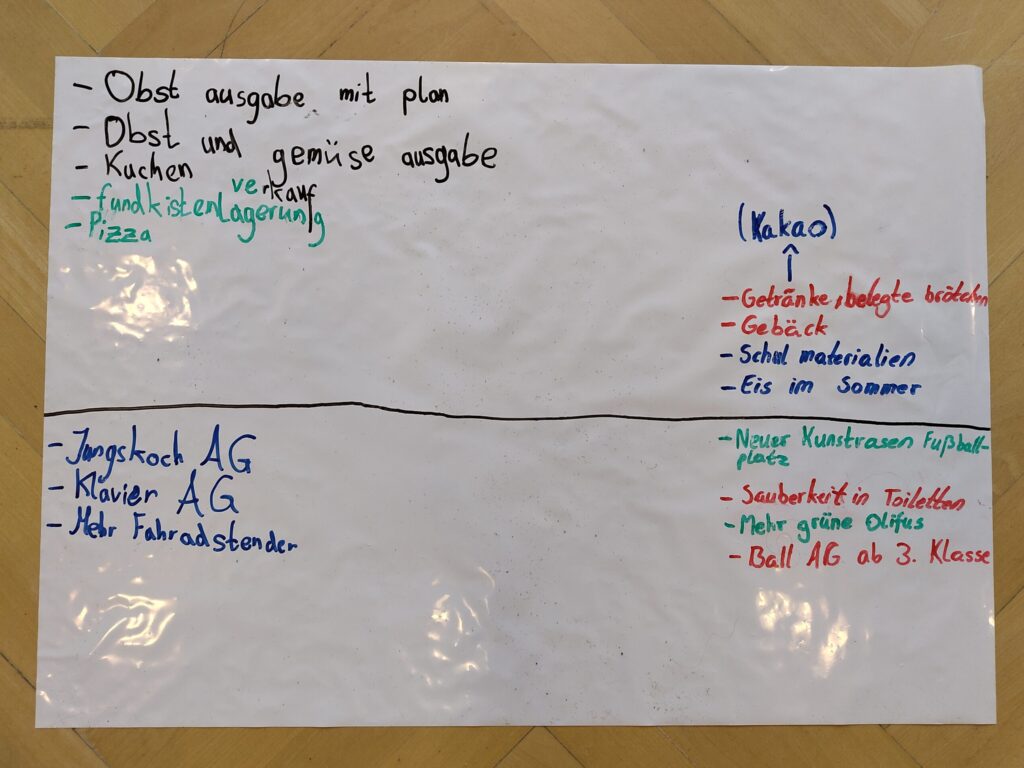 - Obst ausgabe mit plan
- Obst und gemüse ausgabe
- Kuchen verkauf
- fundkistenLagerung
- Pizza
(Kakao)
- Getränke, belegte brötchen
- Gebäck
- Schul materialien
- Eis im Sommer
- Jungskoch AG
- Klavier AG
- Mehr Fahradstender
- Neuer Kunstrasen Fußball-
platz
- Sauberkeit in Toiletten
- Mehr grüne Olifus
- Ball AG ab 3. Klasse